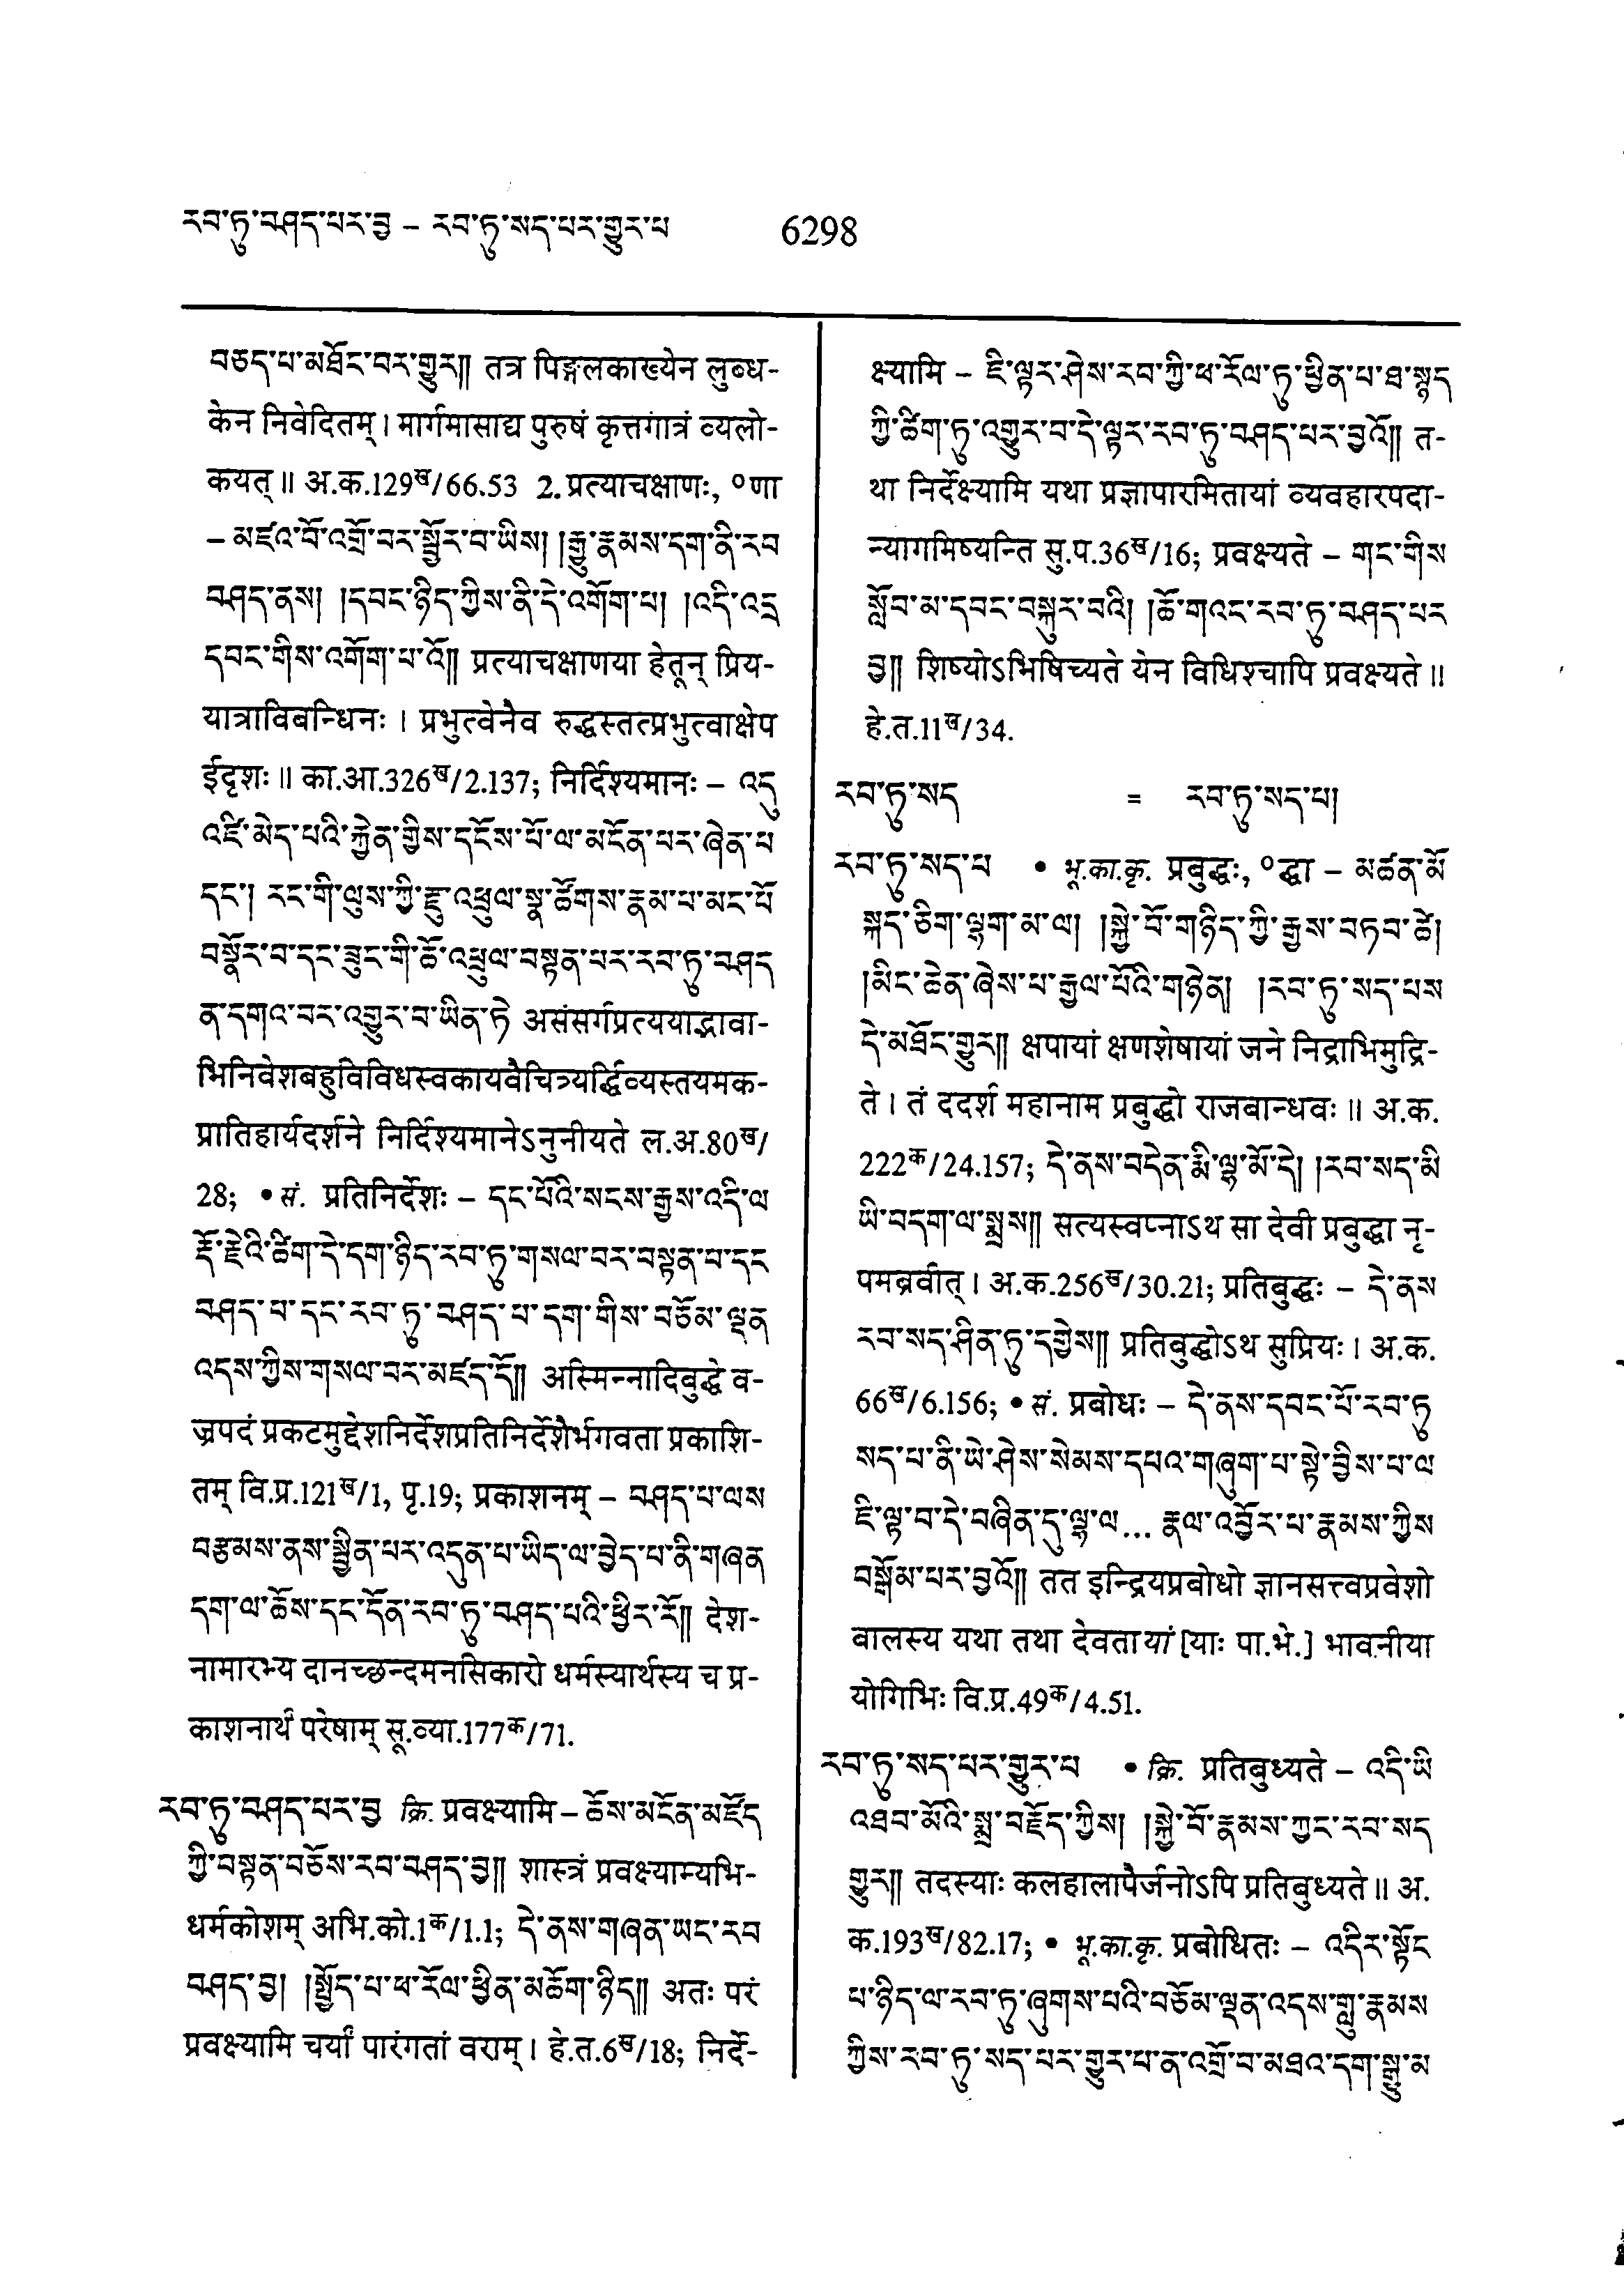 རབ་ཏུ་བཤད་པར་བྱ – རབ་ཏུ་སད་པར་གྱུར་པ 6298
བཅད་པ་མཐོང་བར་གྱུར།། तत्र पिङ्गलकाख्येन लुब्ध-
केन निवेदितम्। मार्गमासाद्य पुरुषं कृत्तगात्रं व्यलो-
कयत्॥ अ.क.129ख/66.53 2. प्रत्याचक्षाणः, ०णा
– མཛའ་བོ་འགྲོ་བར་སྦྱོར་བ་ཡིས། །རྒྱུ་རྣམས་དག་ནི་རབ
བཤད་ནས། །དབང་ཉིད་ཀྱིས་ནི་དེ་འགོག་པ། །འདི་འདྲ
དབང་གིས་འགོག་པ་འོ།། प्रत्याचक्षाणया हेतून् प्रिय-
यात्राविबन्धिनः। प्रभुत्वेनैव रुद्धस्तत्प्रभुत्वाक्षेप
ईदृशः॥ का.आ.326ख/2.137; निर्दिश्यमानः – འདུ
འཛི་མེད་པའི་རྐྱེན་གྱིས་དངོས་པོ་ལ་མངོན་པར་ཞེན་པ
དང་། རང་གི་ལུས་ཀྱི་རྫུ་འཕྲུལ་སྣ་ཚོགས་རྣམ་པ་མང་པོ
བསྣོར་བ་དང་ཟུང་གི་ཆོ་འཕྲུལ་བསྟན་པར་རབ་ཏུ་བཤད
ན་དགའ་བར་འགྱུར་བ་ཡིན་ཏེ असंसर्गप्रत्ययाद्भावा-
भिनिवेशबहुविविधस्वकायवैचित्र्यर्द्धिव्यस्तयमक-
प्रातिहार्यदर्शने निर्दिश्यमानेऽनुनीयते ल.अ.80ख/
28; • सं. प्रतिनिर्देशः – དང་པོའི་སངས་རྒྱས་འདི་ལ
རྡོ་རྗེའི་ཚིག་དེ་དག་ཉིད་རབ་ཏུ་གསལ་བར་བསྟན་པ་དང
བཤད་པ་དང་རབ་ཏུ་བཤད་པ་དག་གིས་བཅོམ་ལྡན
འདས་ཀྱིས་གསལ་བར་མཛད་དོ།། अस्मिन्नादिबुद्धे व-
ज्रपदं प्रकटमुद्देशनिर्देशप्रतिनिर्देशैर्भगवता प्रकाशि-
तम् वि.प्र.121ख/1, पृ.19; प्रकाशनम् – བཤད་པ་ལས
བརྩམས་ནས་སྦྱིན་པར་འདུན་པ་ཡིད་ལ་བྱེད་པ་ནི་གཞན
དག་ལ་ཆོས་དང་དོན་རབ་ཏུ་བཤད་པའི་ཕྱིར་རོ།། देश-
नामारभ्य दानच्छन्दमनसिकारो धर्मस्यार्थस्य च प्र-
काशनार्थं परेषाम् सू.व्या.177क/71.
རབ་ཏུ་བཤད་པར་བྱ क्रि. प्रवक्ष्यामि – ཆོས་མངོན་མཛོད
ཀྱི་བསྟན་བཅོས་རབ་བཤད་བྱ།། शास्त्रं प्रवक्ष्याम्यभि-
धर्मकोशम् अभि.को.1क/1.1; དེ་ནས་གཞན་ཡང་རབ
བཤད་བྱ། །སྤྱོད་པ་ཕ་རོལ་ཕྱིན་མཆོག་ཉིད།། अतः परं
प्रवक्ष्यामि चर्यां पारंगतां वराम्। हे.त.6ख/18; निर्दे-
क्ष्यामि – ཇི་ལྟར་ཤེས་རབ་ཀྱི་ཕ་རོལ་ཏུ་ཕྱིན་པ་ཐ་སྙད
ཀྱི་ཚིག་ཏུ་འགྱུར་བ་དེ་ལྟར་རབ་ཏུ་བཤད་པར་བྱའོ།། त-
था निर्देक्ष्यामि यथा प्रज्ञापारमितायां व्यवहारपदा-
न्यागमिष्यन्ति सु.प.36ख/16; प्रवक्ष्यते – གང་གིས
སློབ་མ་དབང་བསྐུར་བའི། །ཆོ་གའང་རབ་ཏུ་བཤད་པར
བྱ།། शिष्योऽभिषिच्यते येन विधिश्चापि प्रवक्ष्यते॥
हे.त.11ख/34.
རབ་ཏུ་སད = རབ་ཏུ་སད་པ།
རབ་ཏུ་སད་པ • भू.का.कृ. प्रबुद्धः, ०द्धा – མཚན་མོ
སྐད་ཅིག་ལྷག་མ་ལ། །སྐྱེ་བོ་གཉིད་ཀྱི་རྒྱས་བཏབ་ཚེ།
།མིང་ཆེན་ཞེས་པ་རྒྱལ་པོའི་གཉེན། །རབ་ཏུ་སད་པས
དེ་མཐོང་གྱུར།། क्षपायां क्षणशेषायां जने निद्राभिमुद्रि-
ते। तं ददर्श महानाम प्रबुद्धो राजबान्धवः॥ अ.क.
222क/24.157; དེ་ནས་བདེན་རྨི་ལྷ་མོ་དེ། །རབ་སད་མི
ཡི་བདག་ལ་སྨྲས།། सत्यस्वप्नाऽथ सा देवी प्रबुद्धा नृ-
पमब्रवीत्। अ.क.256ख/30.21; प्रतिबुद्धः – དེ་ནས
རབ་སད་ཤིན་ཏུ་དགྱེས།། प्रतिबुद्धोऽथ सुप्रियः। अ.क.
66ख/6.156; • सं. प्रबोधः – དེ་ནས་དབང་པོ་རབ་ཏུ
སད་པ་ནི་ཡེ་ཤེས་སེམས་དཔའ་གཞུག་པ་སྟེ་བྱིས་པ་ལ
ཇི་ལྟ་བ་དེ་བཞིན་དུ་ལྷ་ལ... རྣལ་འབྱོར་པ་རྣམས་ཀྱིས
བསྒོམ་པར་བྱའོ།། तत इन्द्रियप्रबोधो ज्ञानसत्त्वप्रवेशो
बालस्य यथा तथा देवतायां [याः पा.भे.] भावनीया
योगिभिः वि.प्र.49क/4.51.
རབ་ཏུ་སད་པར་གྱུར་པ • क्रि. प्रतिबुध्यते – འདི་ཡི
འཐབ་མོའི་སྨྲ་བརྗོད་ཀྱིས། །སྐྱེ་བོ་རྣམས་ཀྱང་རབ་སད
གྱུར།། तदस्याः कलहालापैर्जनोऽपि प्रतिबुध्यते॥ अ.
क.193ख/82.17; • भू.का.कृ. प्रबोधितः – འདིར་སྟོང
པ་ཉིད་ལ་རབ་ཏུ་ཞུགས་པའི་བཅོམ་ལྡན་འདས་གླུ་རྣམས
ཀྱིས་རབ་ཏུ་སད་པར་གྱུར་པ་ན་འགྲོ་བ་མཐའ་དག་སྒྱུ་མ